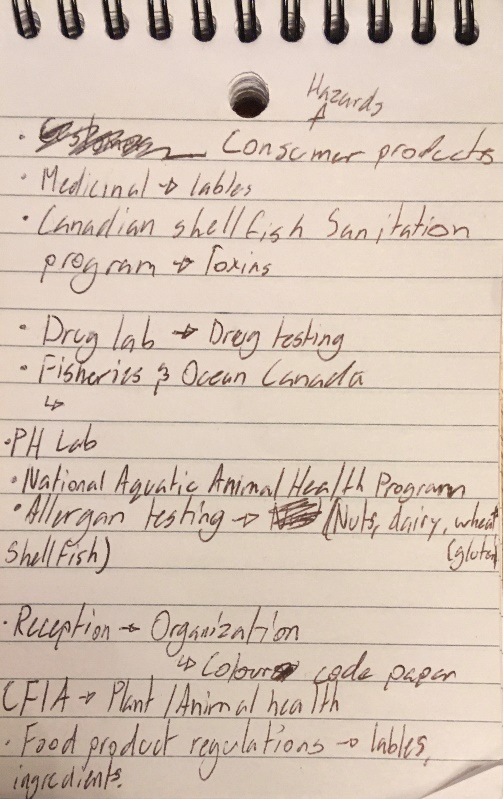 Hazards
· Consumer products
· Medicinal → lables
· Canadian shellfish Sanitation
program → Toxins
· Drug lab → Drug testing
· Fisheries & Ocean Canada
↳
· PH Lab
· National Aquatic Animal Health Program
· Allergan testing → (Nuts, dairy, wheat
Shellfish) (gluten
· Reception → Organization
↳ Colour code paper
CFIA → Plant/Animal health
· Food product regulations → lables,
ingredients.